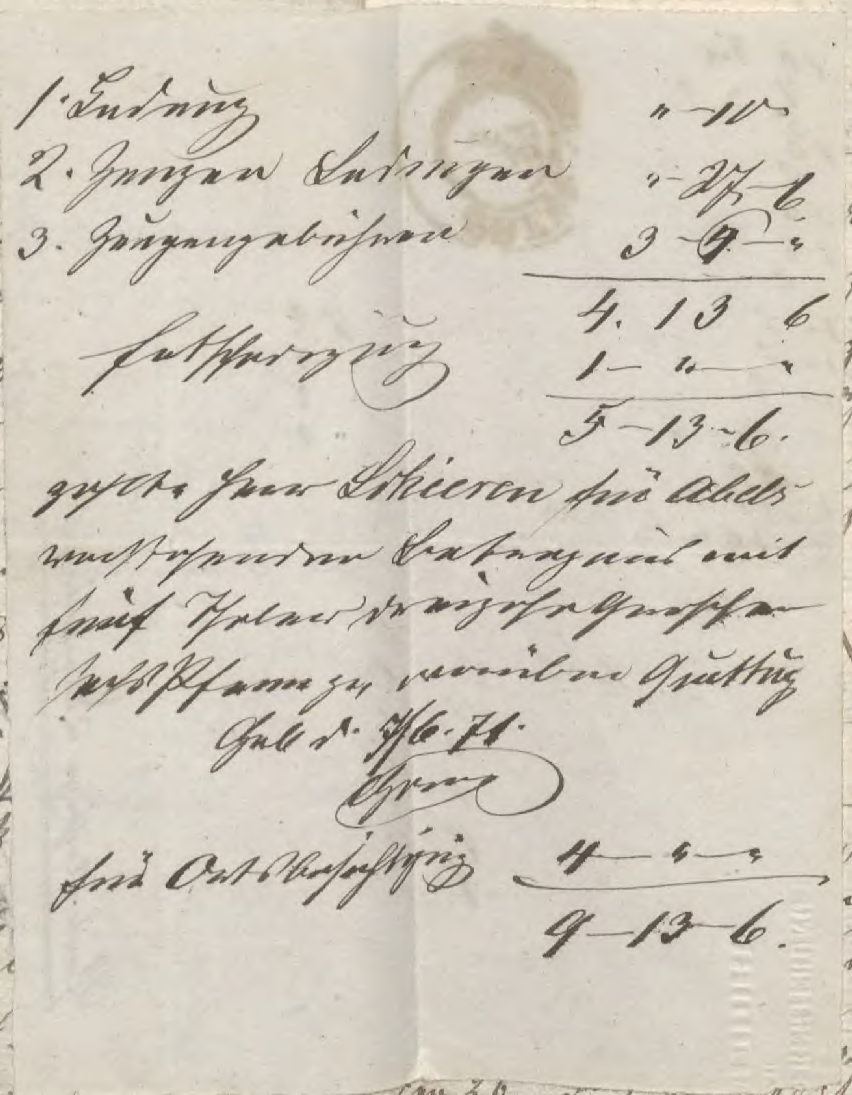 1. Ladung " - 10
2. Zeugen Ladungen " - 27 - 6
3. Zeugengebühren 3 - 9 - "
4. 13 6
Entscheidung 1 - " - "
5 - 13 - 6.
zahlte Herr für Abels
vorstehenden Betrag mit
fünf Thaler dreizehn Groschen
sechs Pfennige, worüber Quittung
d. 7/6. 71.
für Ortsbesichtigung 4 - " - "
9 - 13 - 6.